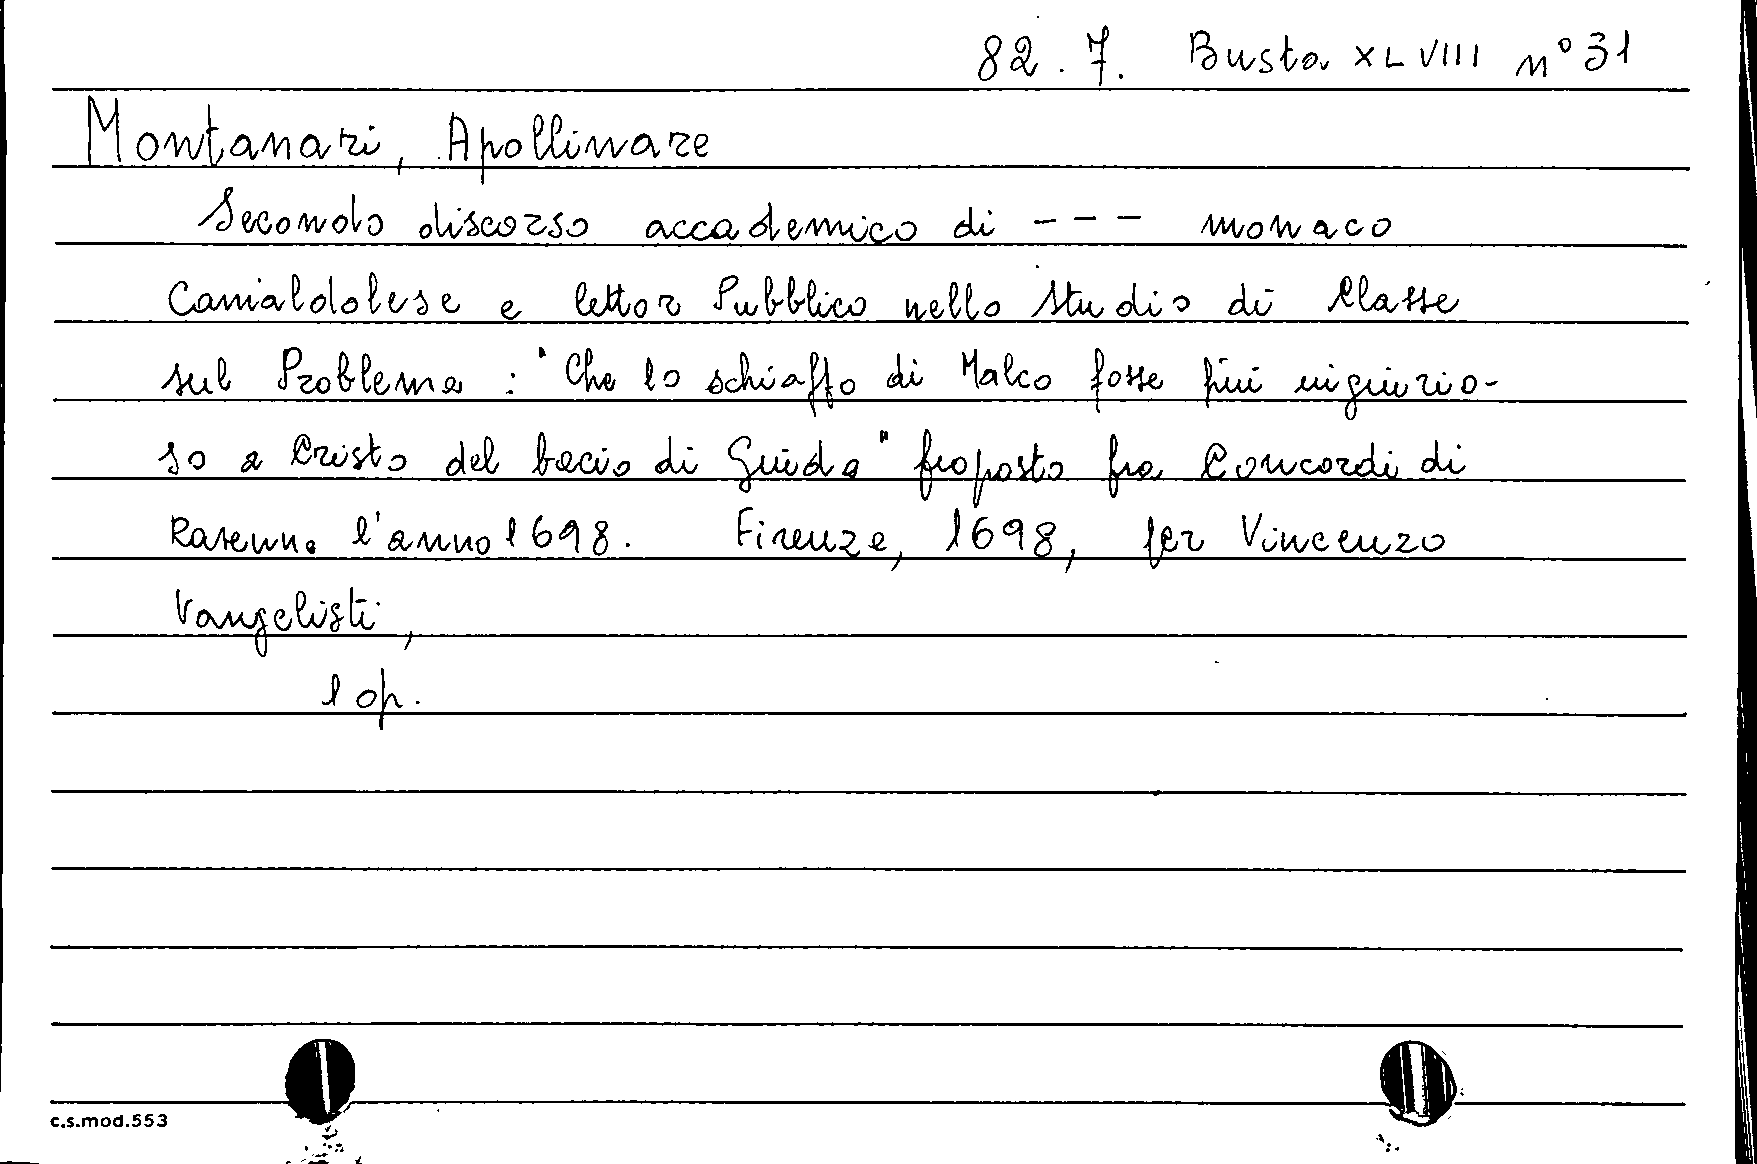 82. 7. Busta XLVIII n° 31
Montanari, Apollinare
Secondo discorso accademico di --- monaco
Camaldolese e lettor Pubblico nello Studio di Classe
sul Problema : "Che lo schiaffo di Malco fosse più ingiurio-
so a Cristo del bacio di Giuda" proposto fra Concordi di
Ravenna l'anno 1698. Firenze, 1698, per Vincenzo
Vangelisti,
1 op.
c.s.mod.553